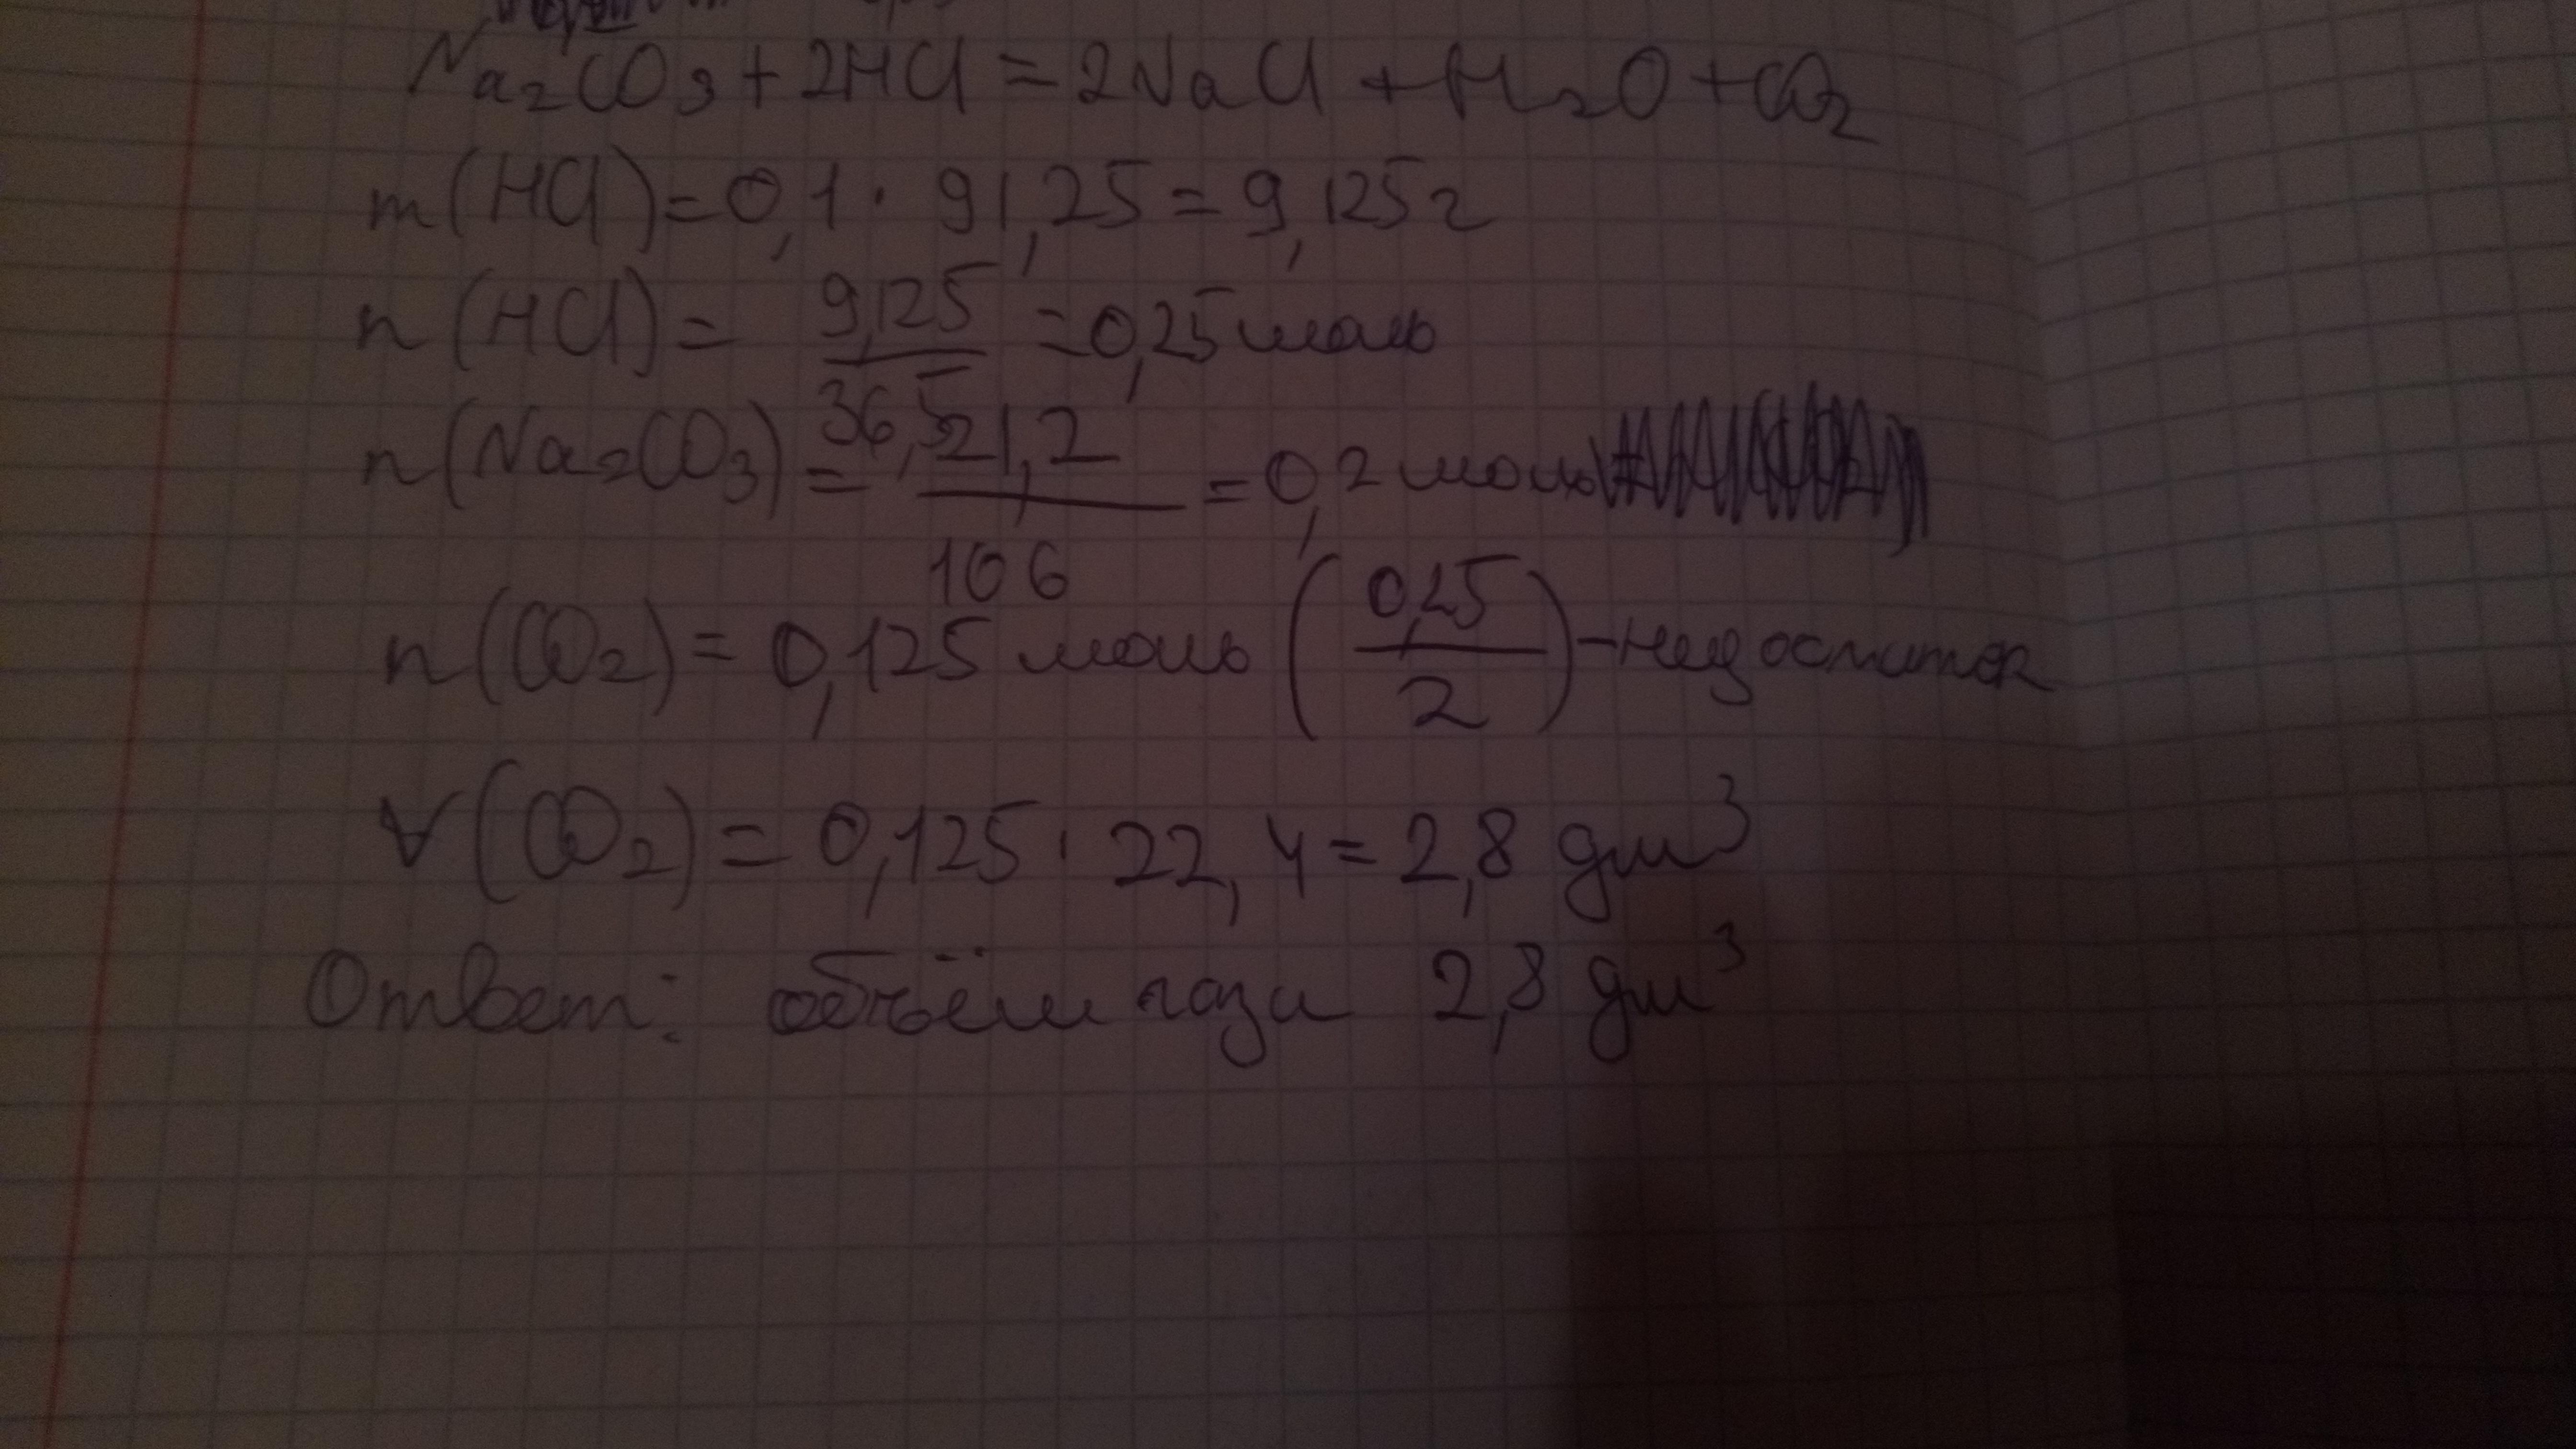 Na₂CO₃ + 2HCl = 2NaCl + H₂O + CO₂
m(HCl) = 0,1 · 91,25 = 9,125 г
n(HCl) = 9,125 / 36,5 = 0,25 моль
n(Na₂CO₃) = 21,2 / 106 = 0,2 моль
n(CO₂) = 0,125 моль (0,25 / 2) – недостаток
V(CO₂) = 0,125 · 22,4 = 2,8 дм³
Ответ: объём газа 2,8 дм³